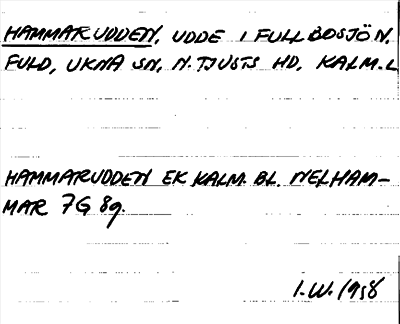 HAMMARUDDEN, UDDE I FULLBOSJÖN,
FULD, UKNA SN, N. TJUSTS HD, KALM. L
HAMMARUDDEN EK KALM. BL. NELHAM-
MAR 7G 8g.
I.W. 1958